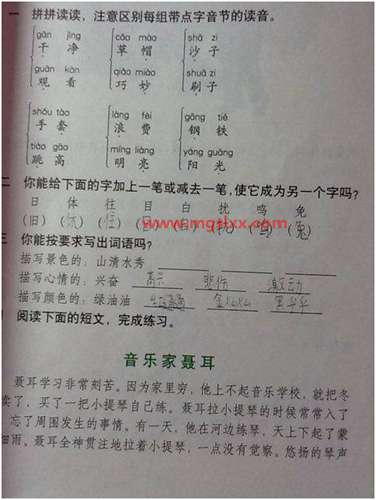 一 拼拼读读，注意区别每组带点字音节的读音。
gān jìng cǎo mào shā zi
干 净 草 帽 沙 子
guān kàn qiǎo miào shuā zi
观 看 巧 妙 刷 子
shǒu tào làng fèi gāng tiě
手 套 浪 费 钢 铁
tiào gāo míng liàng yáng guāng
跳 高 明 亮 阳 光
二 你能给下面的字加上一笔或减去一笔，使它成为另一个字吗？
日 体 往 目 白 扰 鸣 免
(旧) (休) (住) (兔)
www.mgslxx.com
三 你能按要求写出词语吗？
描写景色的：山清水秀
描写心情的：兴奋 高兴 悲伤 激动
描写颜色的：绿油油 金灿灿 黑乎乎
阅读下面的短文，完成练习。
音乐家聂耳
聂耳学习非常刻苦。因为家里穷，他上不起音乐学校，就把冬
卖了，买了一把小提琴自己练。聂耳拉小提琴的时候常常入了
忘了周围发生的事情。有一天，他在河边练琴，天上下起了蒙
细雨。聂耳全神贯注地拉着小提琴，一点没有觉察。悠扬的琴声